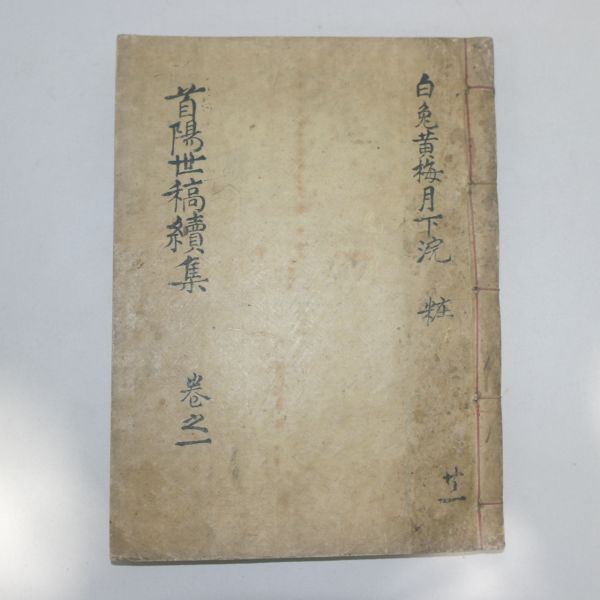 白兔黃梅月下浣 粧
廿一
首陽世稿續集 卷之一